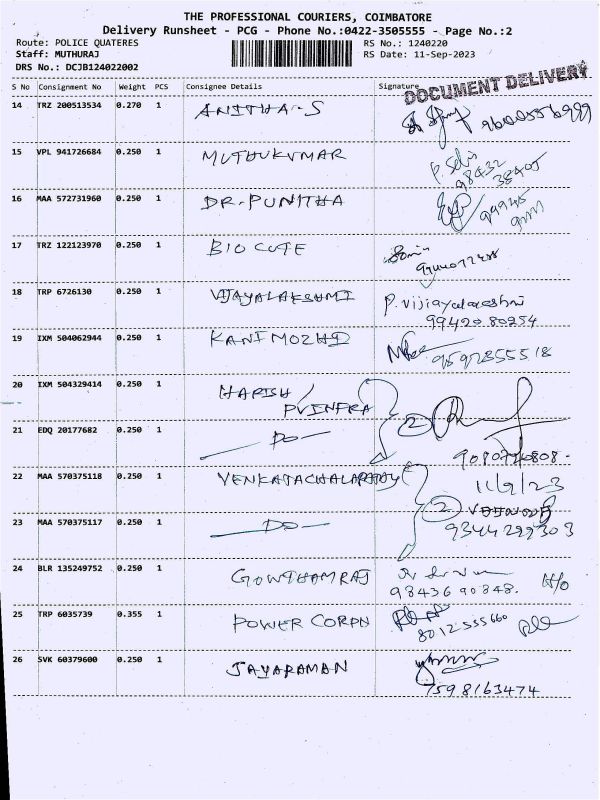 THE PROFESSIONAL COURIERS, COIMBATORE
Delivery Runsheet - PCG - Phone No.:0422-3505555 - Page No.:2
Route: POLICE QUATERES
RS No.: 1240220
Staff: MUTHURAJ
RS Date: 11-Sep-2023
DRS No.: DCJB124022002
DOCUMENT DELIVERY
S No Consignment No Weight PCS Consignee Details Signature
14 TRZ 200513534 0.270 1 ANITHA-S
15 VPL 941726684 0.250 1 MUTHUKUMAR
98432
38405
16 MAA 572731960 0.250 1 DR-PUNITHA
17 TRZ 122123970 0.250 1 BIO CUTE
18 TRP 6726130 0.250 1 VIJAYALAKSHMI P. vijiayalakshmi
99420 80254
19 IXM 504062944 0.250 1 KANIMOZHI
20 IXM 504329414 0.250 1 HARISH/
PVINFRA 2
21 EDQ 20177682 0.250 1 -DO-
22 MAA 570375118 0.250 1 VENKATACHALAPATHY 11/9/23
2
23 MAA 570375117 0.250 1 -DO- 9344299303
24 BLR 135249752 0.250 1 GOWTHAMRAJ
98436 90848. H/o
25 TRP 6035739 0.355 1 POWER CORPN
8012555660
26 SVK 60379600 0.250 1 JAYARAMAN
7598163474